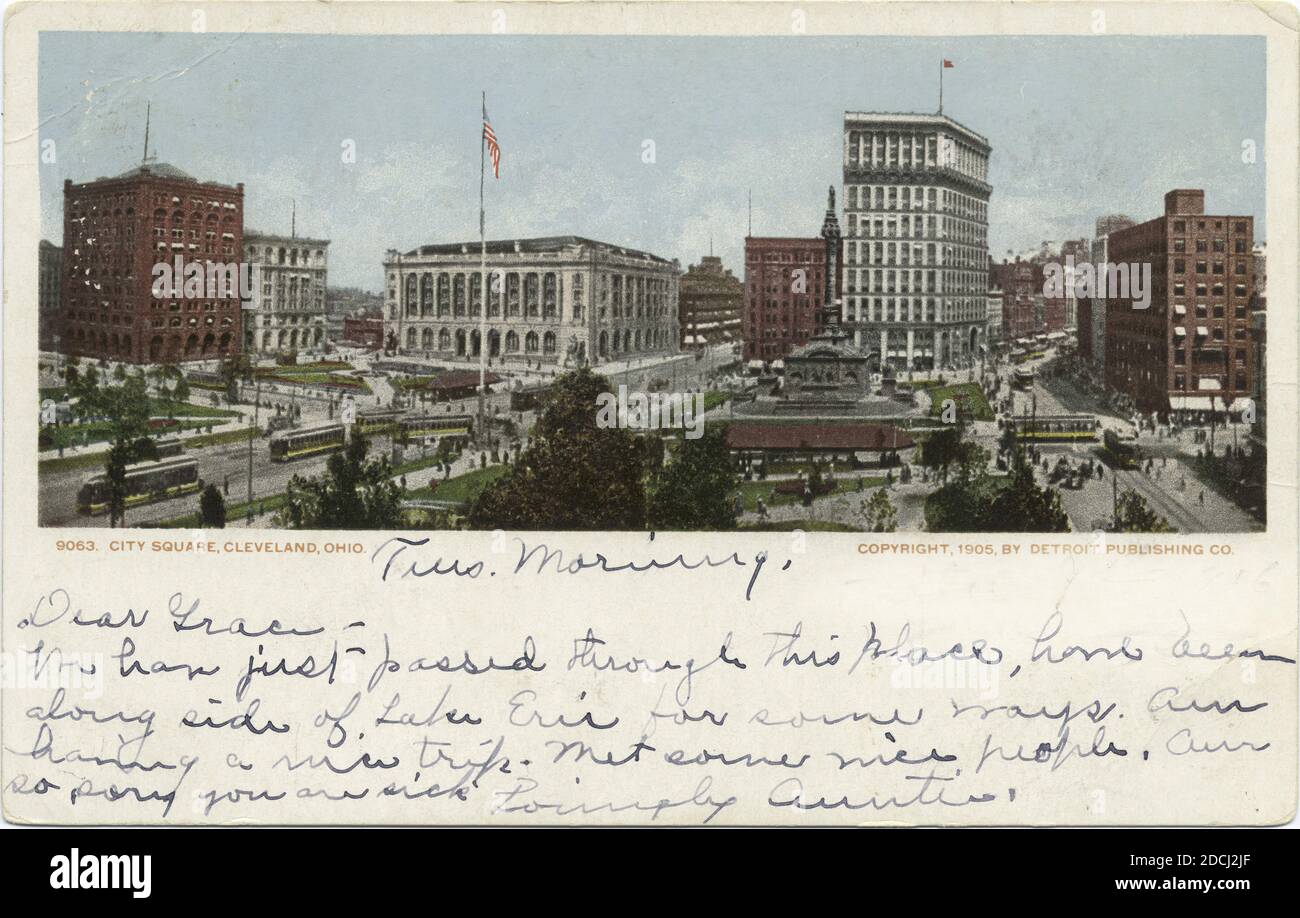 9063. CITY SQUARE, CLEVELAND, OHIO.
COPYRIGHT, 1905, BY DETROIT PUBLISHING CO.
Tues. Morning.
Dear Grace -
We have just passed through this place, have been
along side of Lake Erie for some ways. Am
having a nice trip. Met some nice people. Am
so sorry you are sick Lovingly Auntie.
alamy
Image ID: 2DCJ2JF
www.alamy.com